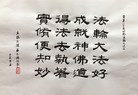 法輪大法好
成就神佛道
得法去執著
實脩便知妙